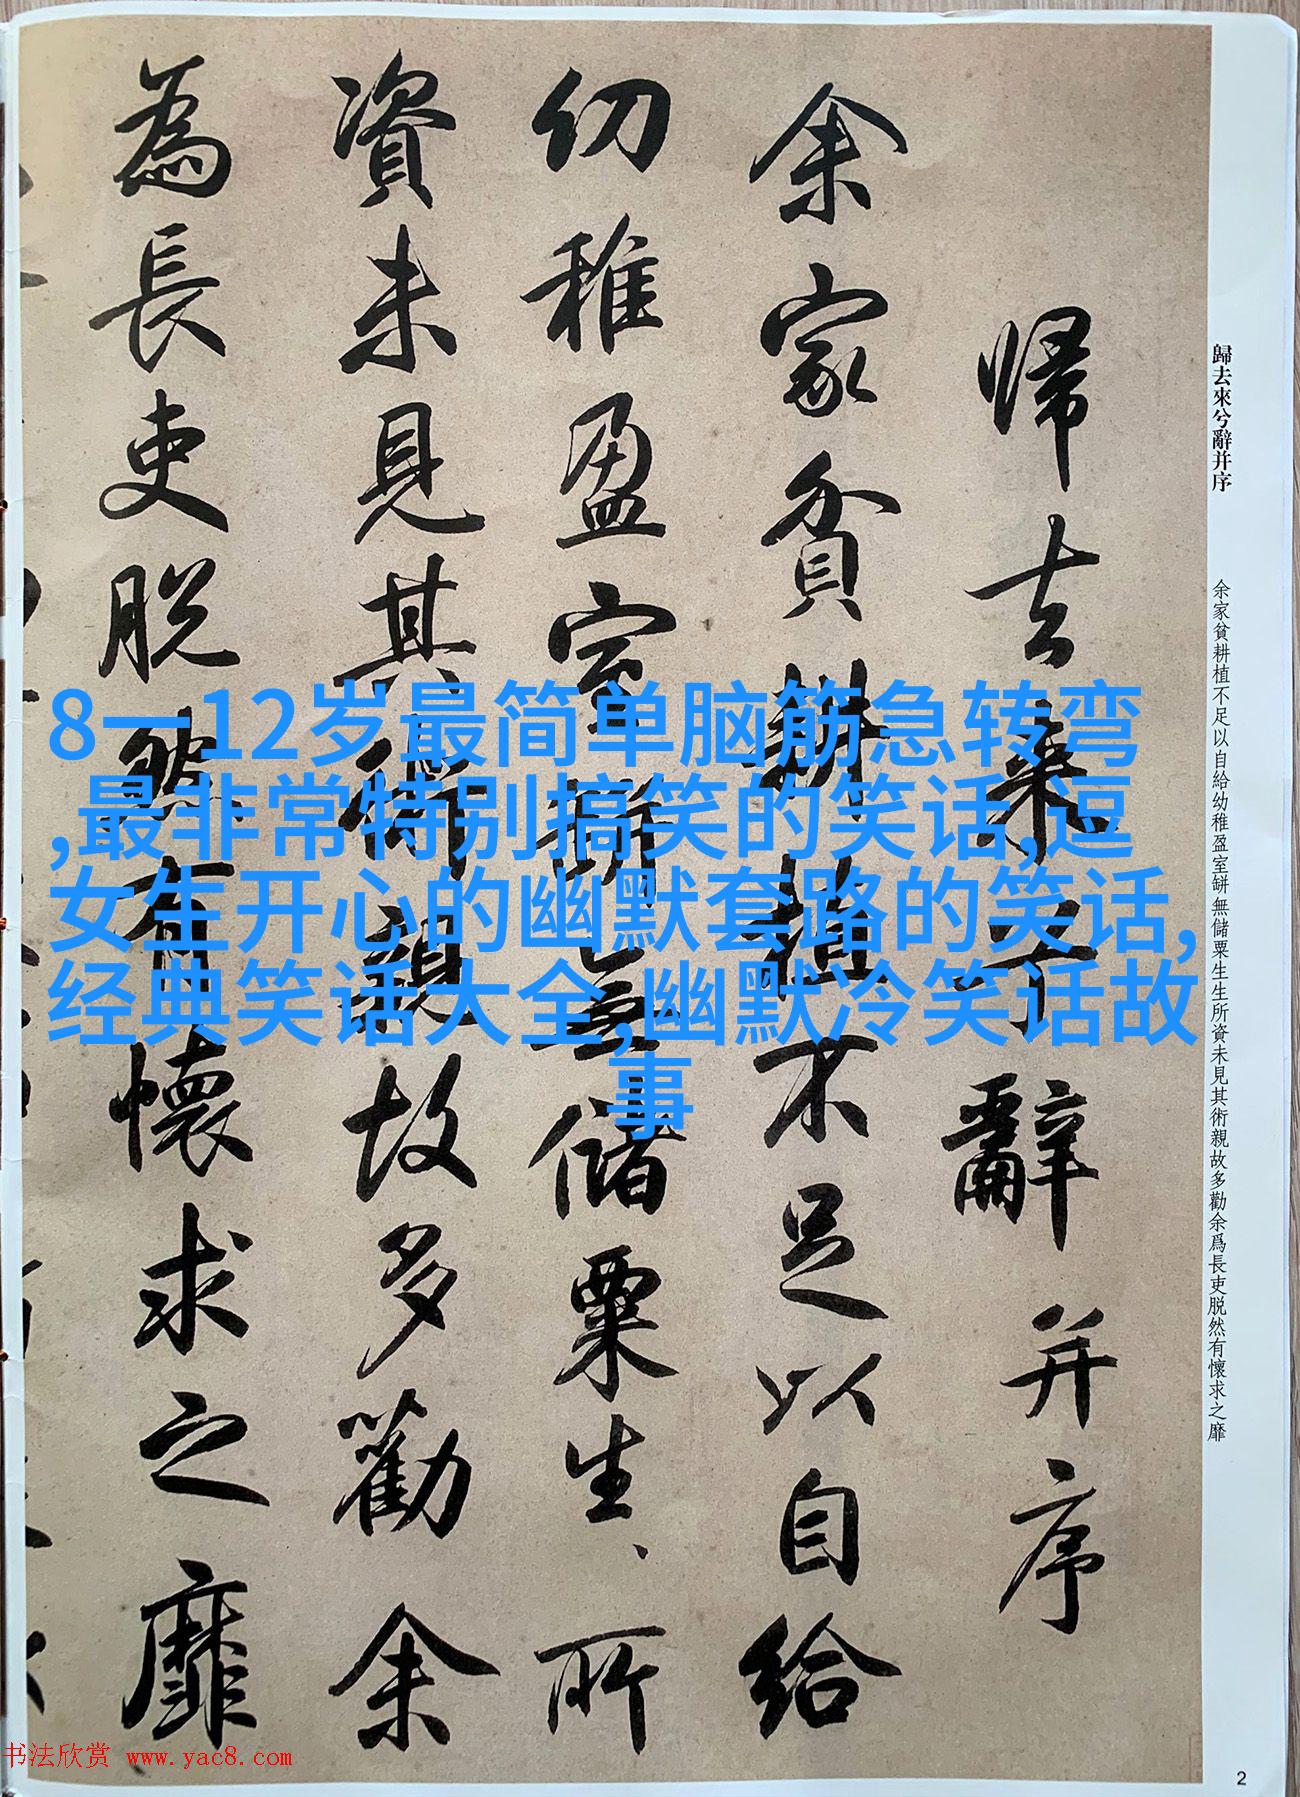 歸去來兮辭并序
余家貧耕植不足以自給幼稚盈室缾無儲粟生生所資未見其術親故多勸余爲長吏脱然有懷求之靡
帰去来兮辭并序
余家貧耕植不足以自給
幼稚盈室缾無儲粟生、所
資未見其術親故多勸余
為長吏脱然有懷求之靡
8一12岁最简单脑筋急转弯
,最非常特别搞笑的笑话,逗
女生开心的幽默套路的笑话,
经典笑话大全,幽默冷笑话故
事
书法欣赏 www.yac8.com
2